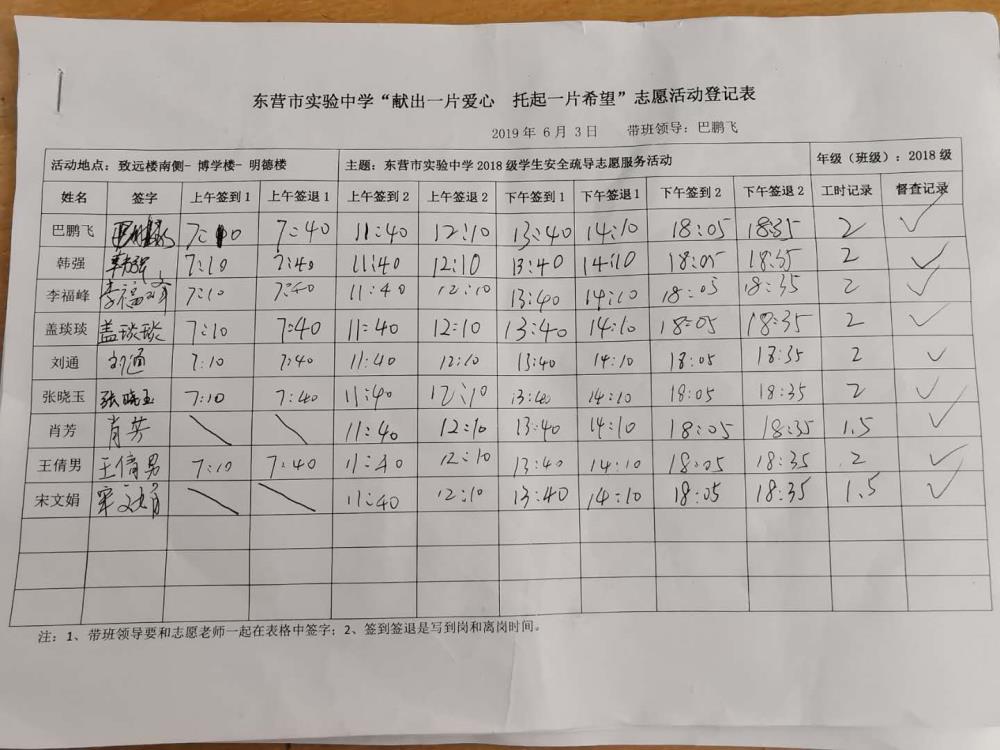 东营市实验中学“献出一片爱心 托起一片希望”志愿活动登记表
2019 年 6 月 3 日 带班领导：巴鹏飞
活动地点：致远楼南侧- 博学楼- 明德楼 主题：东营市实验中学 2018 级学生安全疏导志愿服务活动 年级（班级）：2018 级
姓名 签字 上午签到 1 上午签退 1 上午签到 2 上午签退 2 下午签到 1 下午签退 1 下午签到 2 下午签退 2 工时记录 督查记录
巴鹏飞 巴鹏飞 7:10 7:40 11:40 12:10 13:40 14:10 18:05 18:35 2 ✓
韩强 韩强 7:10 7:40 11:40 12:10 13:40 14:10 18:05 18:35 2 ✓
李福峰 李福峰 7:10 7:40 11:40 12:10 13:40 14:10 18:05 18:35 2 ✓
盖琰琰 盖琰琰 7:10 7:40 11:40 12:10 13:40 14:10 18:05 18:35 2 ✓
刘通 刘通 7:10 7:40 11:40 12:10 13:40 14:10 18:05 18:35 2 ✓
张晓玉 张晓玉 7:10 7:40 11:40 12:10 13:40 14:10 18:05 18:35 2 ✓
肖芳 肖芳 \ \ 11:40 12:10 13:40 14:10 18:05 18:35 1.5 ✓
王倩男 王倩男 7:10 7:40 11:40 12:10 13:40 14:10 18:05 18:35 2 ✓
宋文娟 宋文娟 \ \ 11:40 12:10 13:40 14:10 18:05 18:35 1.5 ✓
注：1、带班领导要和志愿老师一起在表格中签字；2、签到签退是写到岗和离岗时间。